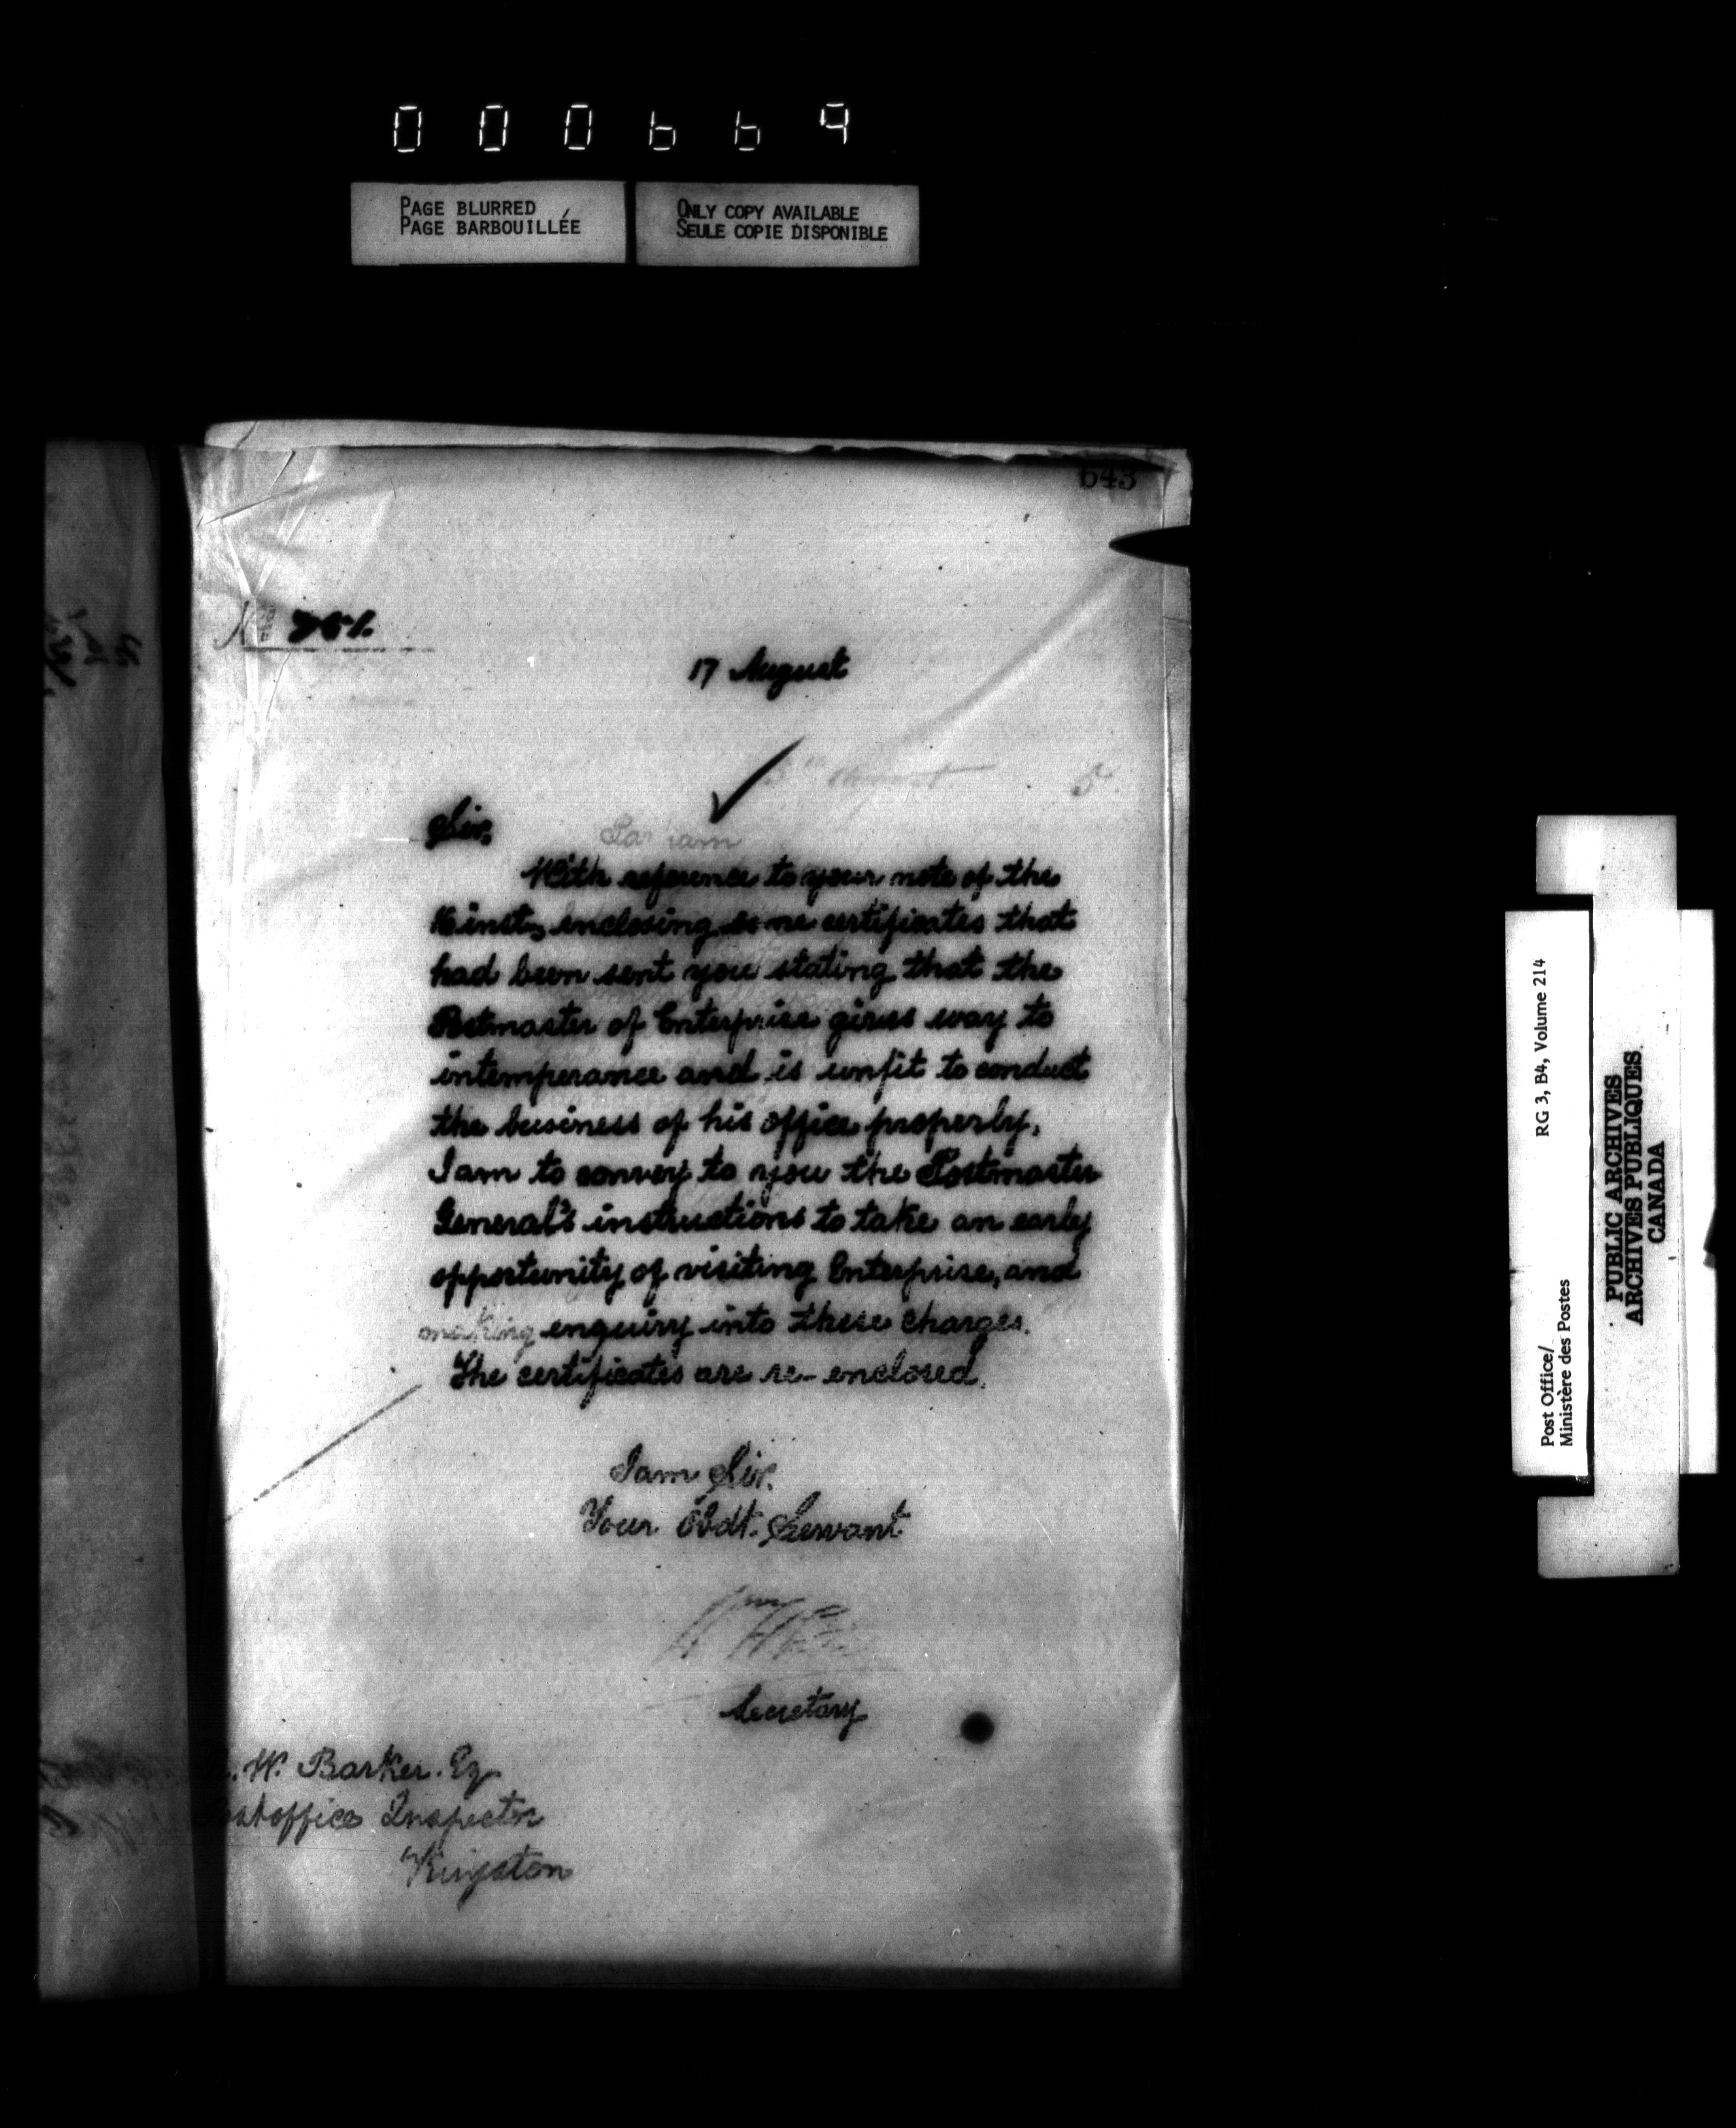 000669
PAGE BLURRED
PAGE BARBOUILLÉE
ONLY COPY AVAILABLE
SEULE COPIE DISPONIBLE
643
No 751.
17 August
5
Sir,
With reference to your note of the
inst, enclosing some certificates that
had been sent you stating that the
Postmaster of Enterprise gives way to
intemperance and is unfit to conduct
the business of his office properly,
I am to convey to you the Postmaster
General's instructions to take an early
opportunity of visiting Enterprise, and
making enquiry into these charges.
The certificates are re-enclosed.
I am Sir.
Your Obdt. Servant
Secretary
R. W. Barker. Eq
Postoffice Inspector
Kingston
Post Office/ RG 3, B4, Volume 214
Ministère des Postes
PUBLIC ARCHIVES
ARCHIVES PUBLIQUES
CANADA